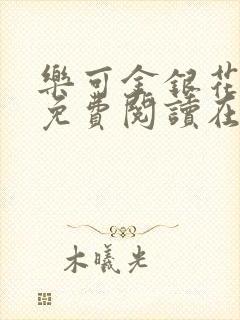 樂可金銀花
免費閱讀在
木曦光